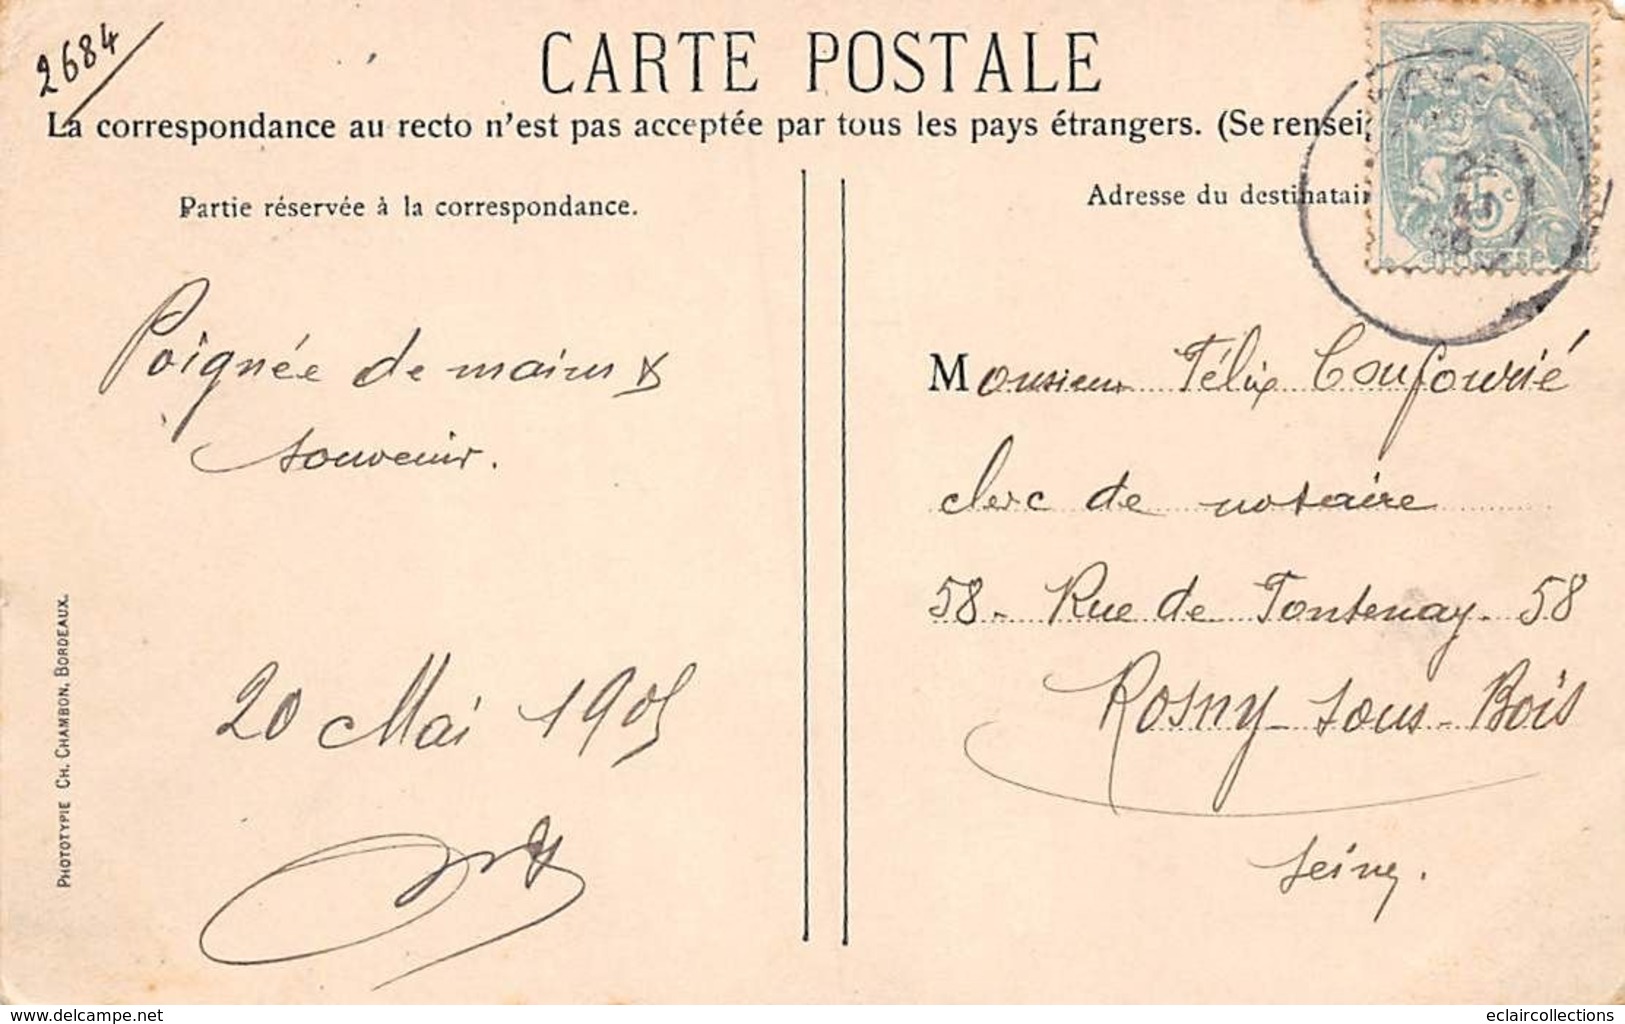 2684
CARTE POSTALE
La correspondance au recto n'est pas acceptée par tous les pays étrangers. (Se rensei
Partie réservée à la correspondance.
Poignée de mains &
souvenir.
20 Mai 1905
PHOTOTYPIE CH. CHAMBON, BORDEAUX.
Adresse du destinatair
5c
Monsieur Félix Confourié
clerc de notaire
58 - Rue de Fontenay. 58
Rosny-sous-Bois
Seine.
www.delcampe.net
eclaircollections